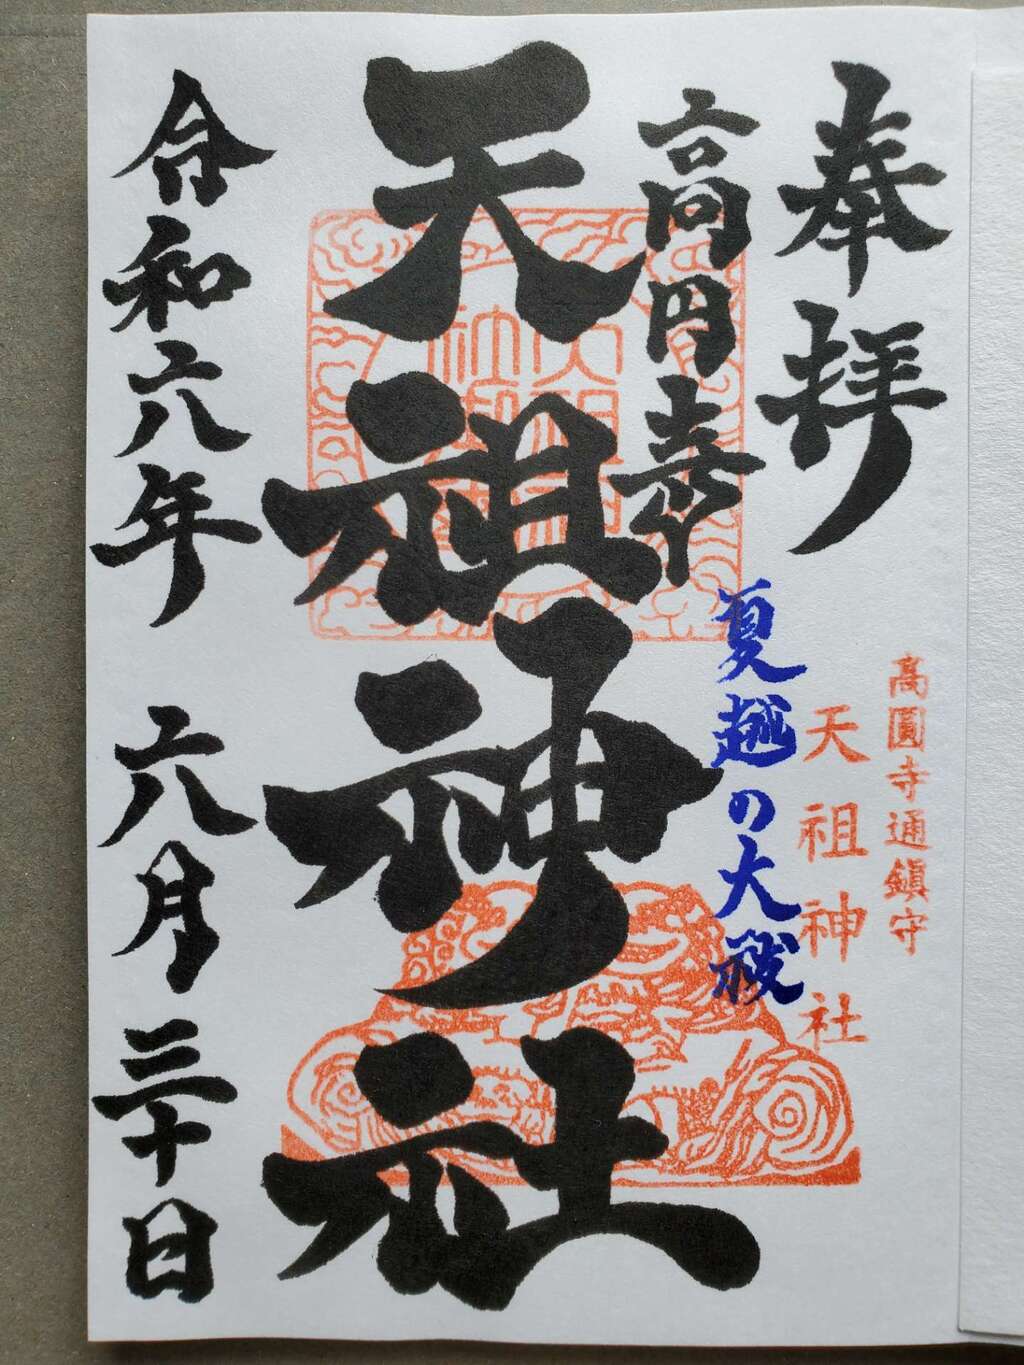 奉拝
髙圓寺通鎮守
天祖神社
高円寺
夏越の大祓
天祖神社
令和六年 六月 三十日